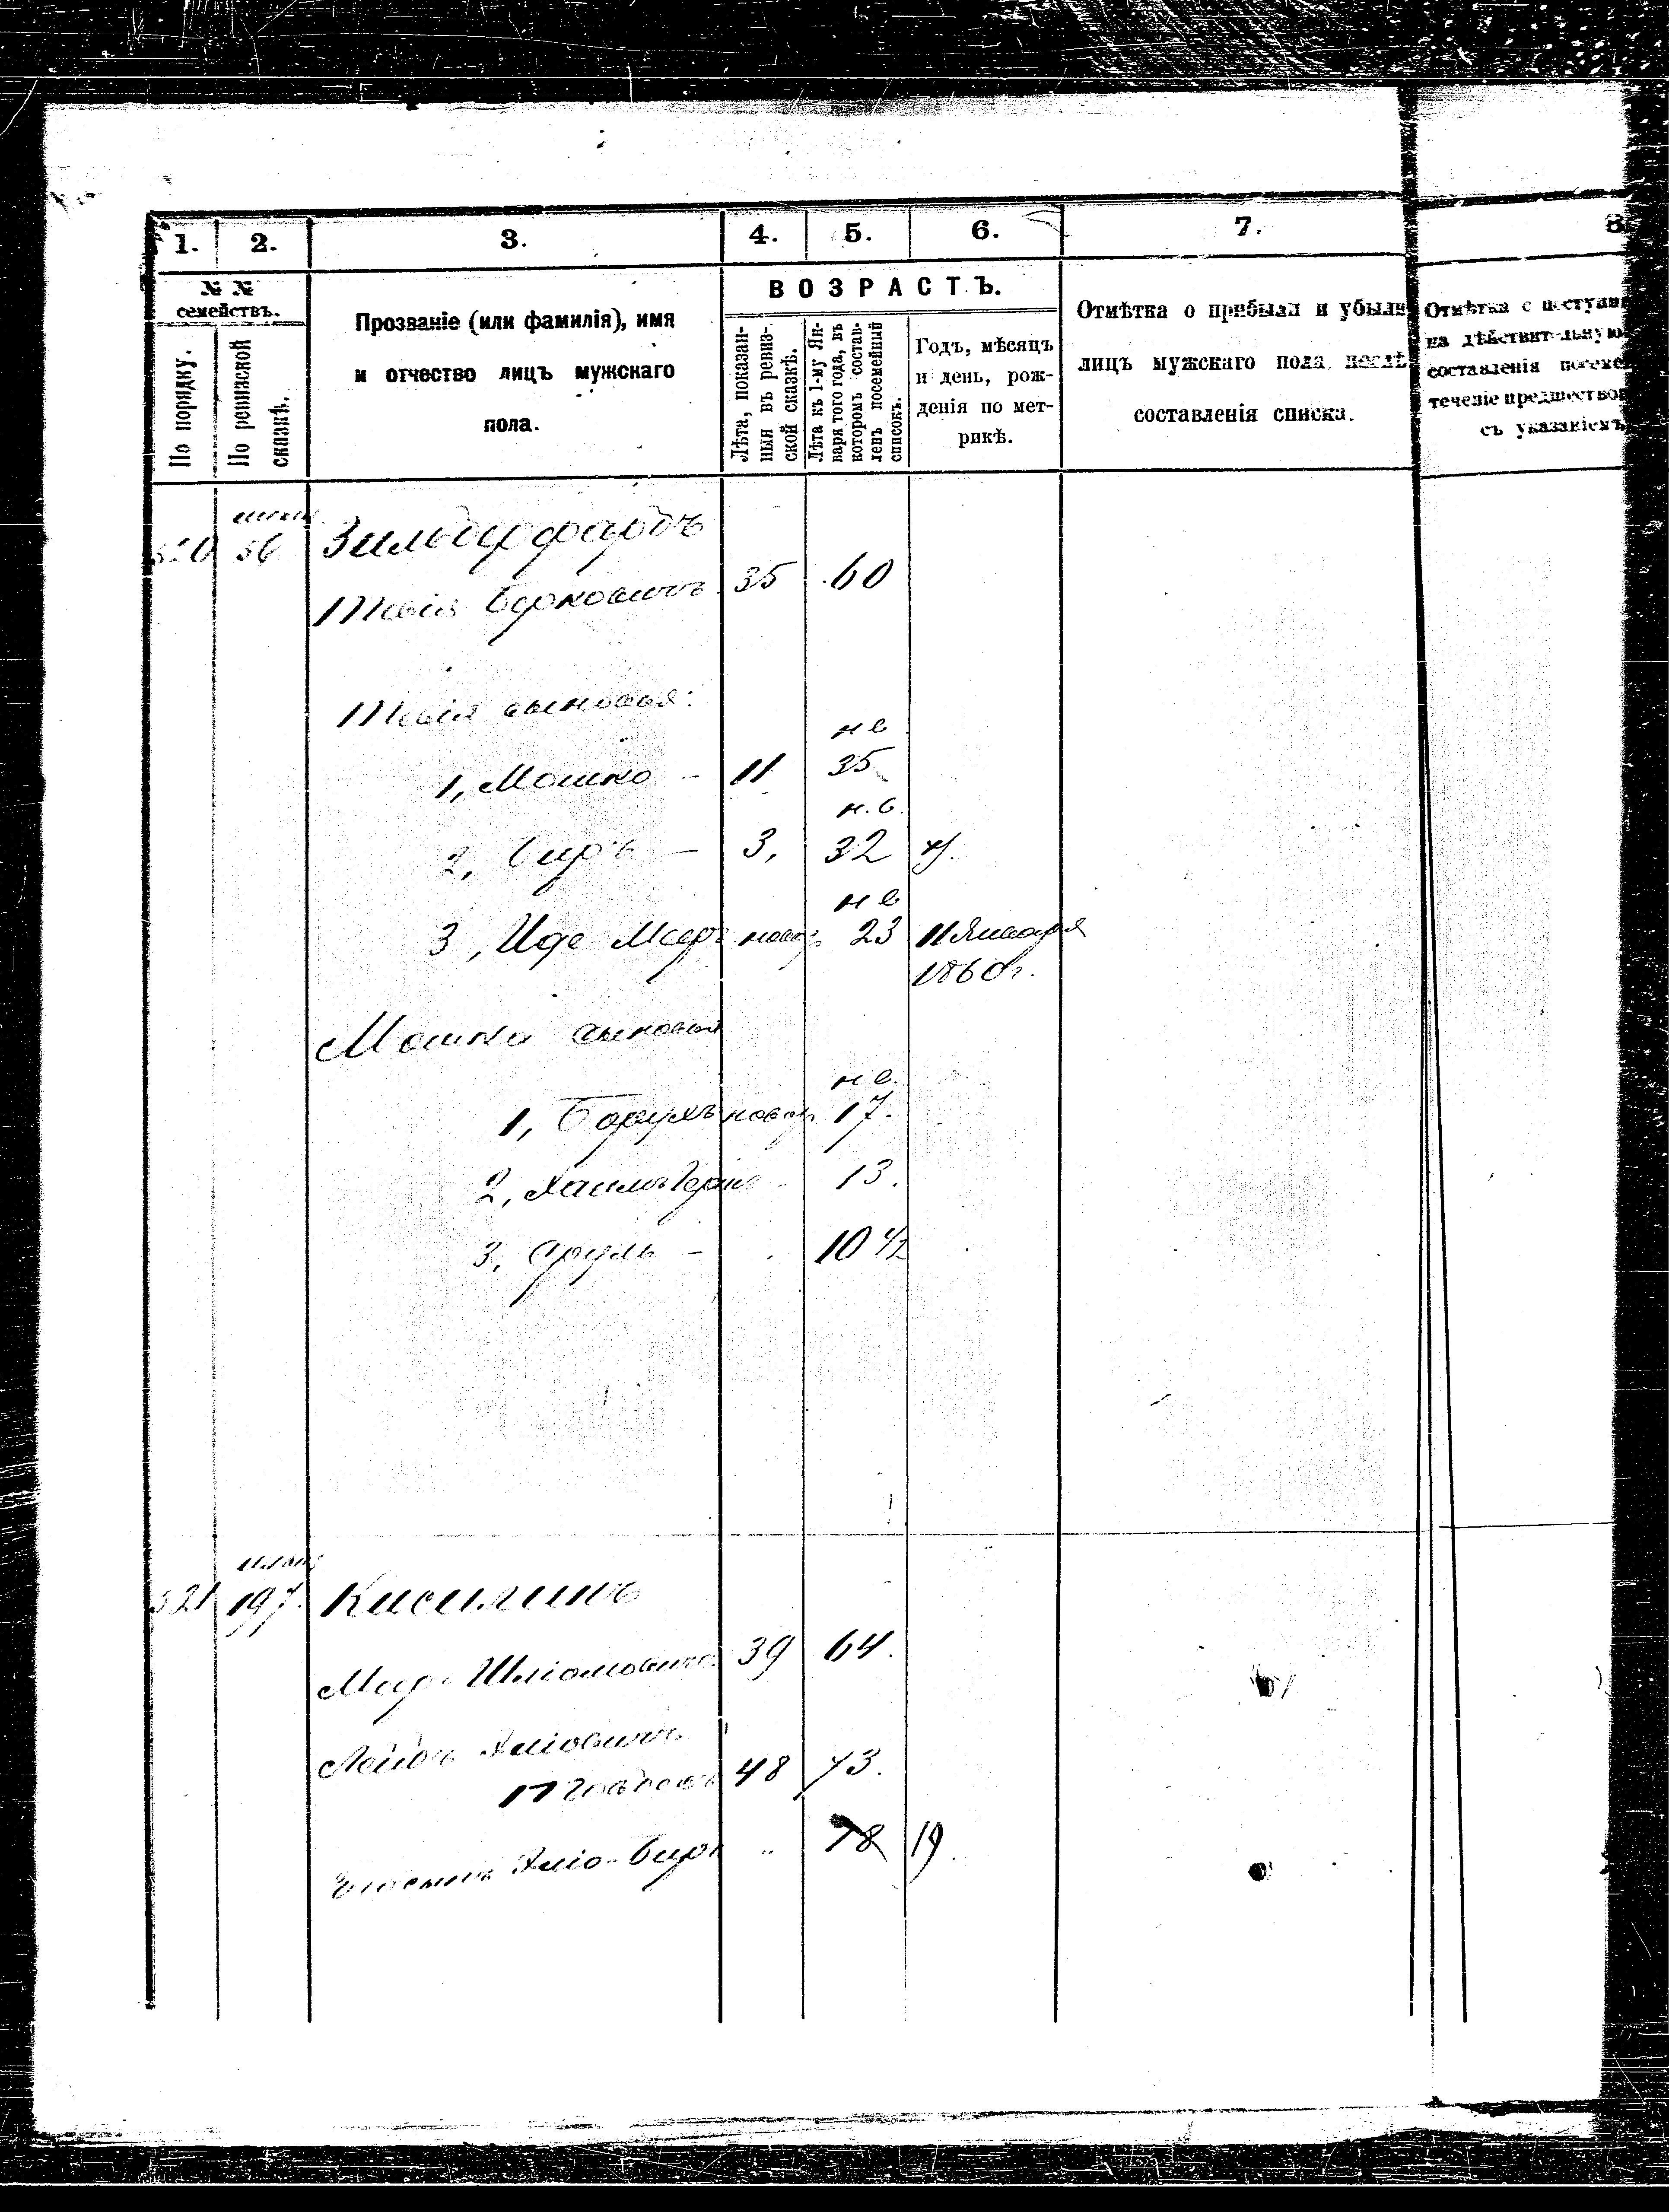 1. 2. 3. 4. 5. 6. 7. 8
№ №
семействъ.
По порядку.
По ревизской
сказкѣ.
Прозваніе (или фамилія), имя
и отчество лицъ мужскаго
пола.
ВОЗРАСТЪ.
Лѣта, показан-
ныя въ ревиз-
ской сказкѣ.
Лѣта къ 1-му Ян-
варя того года, въ
которомъ состав-
ленъ посемейный
списокъ.
Годъ, мѣсяцъ
и день, рож-
денія по мет-
рикѣ.
Отмѣтка о прибыли и убыли
лицъ мужскаго пола, послѣ
составленія списка.
Отмѣтка о поступ
на дѣйствительную
составленія посеме
теченіе предшество
съ указаніемъ
56
Тевія Берковичъ 35 60
Тевія сыновья:
н в
1, Мошко - 11 35
н. в.
2, - 3, 32
н в
3, Ице Меер 23 11 Января
1860 г.
Мошки сыновья
н в.
1, Борухъ новор 17.
2, Хаимъ 13.
3, Сруль - 10 1/2
321 197. Кисилинъ
Меер Шліомовичъ 39 64.
Лейбъ 48 73.
Его сынъ 78 19.